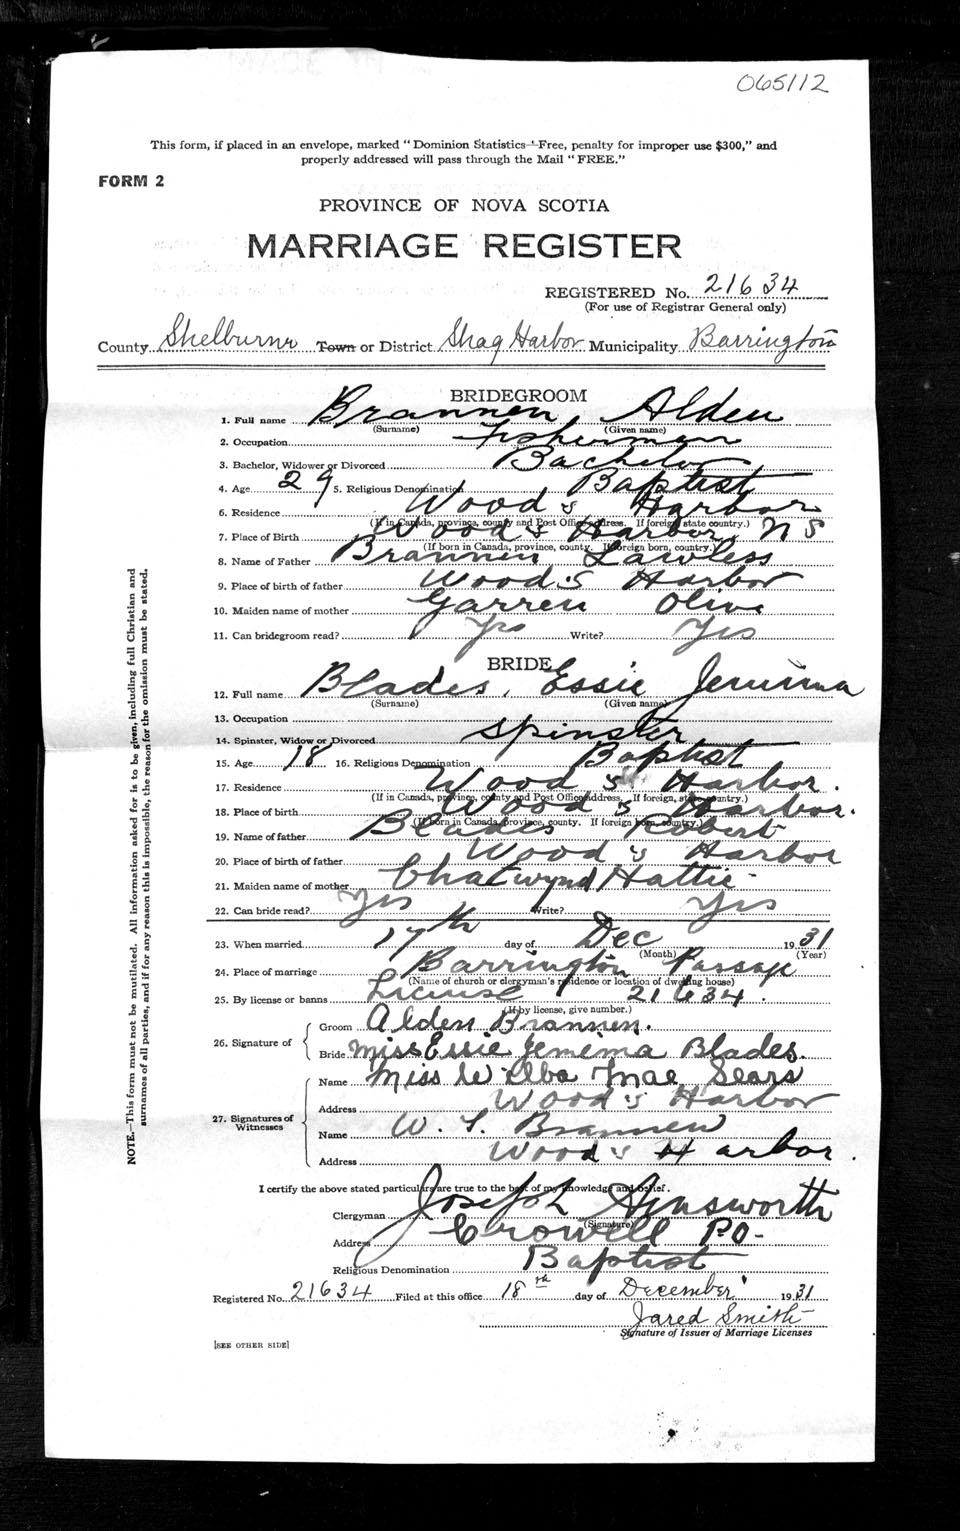 065112
This form, if placed in an envelope, marked "Dominion Statistics—Free, penalty for improper use $300," and
properly addressed will pass through the Mail "FREE."
FORM 2
PROVINCE OF NOVA SCOTIA
MARRIAGE REGISTER
REGISTERED No. 21634
(For use of Registrar General only)
County Shelburne Town or District Shag Harbor Municipality Barrington
BRIDEGROOM
1. Full name Brannen Alden
(Surname) (Given name)
2. Occupation Fisherman
3. Bachelor, Widower or Divorced Bachelor
4. Age 29 5. Religious Denomination Baptist
6. Residence Wood's Harbor
(If in Canada, province, county and Post Office address. If foreign state country.)
7. Place of Birth Wood's Harbor, N S
(If born in Canada, province, county. If foreign born, country.)
8. Name of Father Brannen Lawless
9. Place of birth of father Wood's Harbor
10. Maiden name of mother Garren Olive
11. Can bridegroom read? Yes Write? Yes
BRIDE
12. Full name Blades, Essie Jemima
(Surname) (Given name)
13. Occupation
14. Spinster, Widow or Divorced Spinster
15. Age 18 16. Religious Denomination Baptist
17. Residence Wood's Harbor.
(If in Canada, province, county and Post Office address. If foreign, state country.)
18. Place of birth Wood's Harbor.
(If born in Canada, province, county. If foreign born, country.)
19. Name of father Blades Robert
20. Place of birth of father Wood's Harbor
21. Maiden name of mother Chatwynd Hattie
22. Can bride read? Yes Write? Yes
23. When married 17th day of Dec 1931
(Month) (Year)
24. Place of marriage Barrington Passage
(Name of church or clergyman's residence or location of dwelling house)
25. By license or banns License 21634.
(If by license, give number.)
26. Signature of
Groom Alden Brannen.
Bride Miss Essie Jemima Blades.
27. Signatures of Witnesses
Name Miss Wilba Mae Sears
Address Wood's Harbor
Name W. L. Brannen
Address Wood's Harbor.
I certify the above stated particulars are true to the best of my knowledge and belief.
Clergyman Joseph Ainsworth
(Signature)
Address Crowell P.O-
Religious Denomination Baptist
Registered No. 21634 Filed at this office 18th day of December 1931
Jared Smith
Signature of Issuer of Marriage Licenses
[SEE OTHER SIDE]
NOTE.—This form must not be mutilated. All information asked for is to be given, including full Christian and
surnames of all parties, and if for any reason this is impossible, the reason for the omission must be stated.